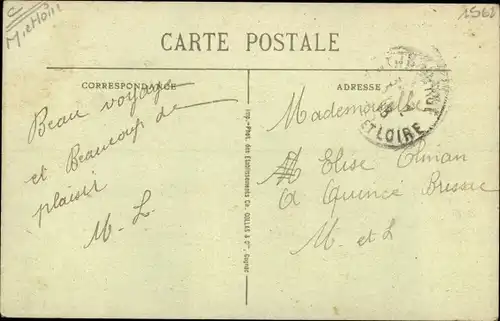 1562
CARTE POSTALE
CORRESPONDANCE
ADRESSE
ET LOIRE
Beau voyage
et Beaucoup de
plaisir
M. L.
Imp.-Phot. des Etablissements Ch. COLLAS & Cie, Cognac
Mademoiselle
Elise
à Quincé Brissac
M. et L